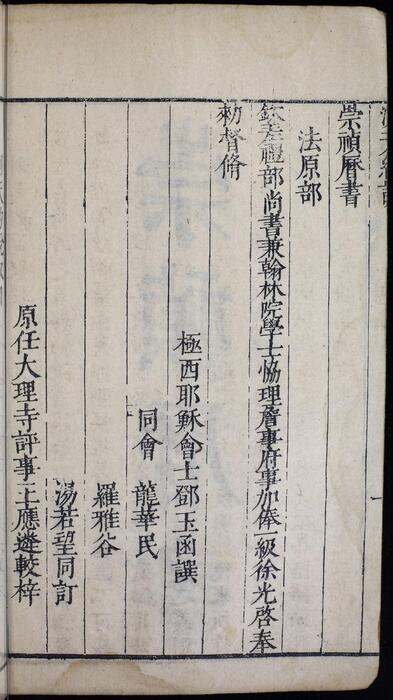 崇禎曆書
法原部
欽差禮部尚書兼翰林院學士恊理詹事府事加俸一級徐光啓奉
勑督脩
極西耶穌會士鄧玉函譔
同會 龍華民
羅雅谷
湯若望同訂
原任大理寺評事王應遴較梓